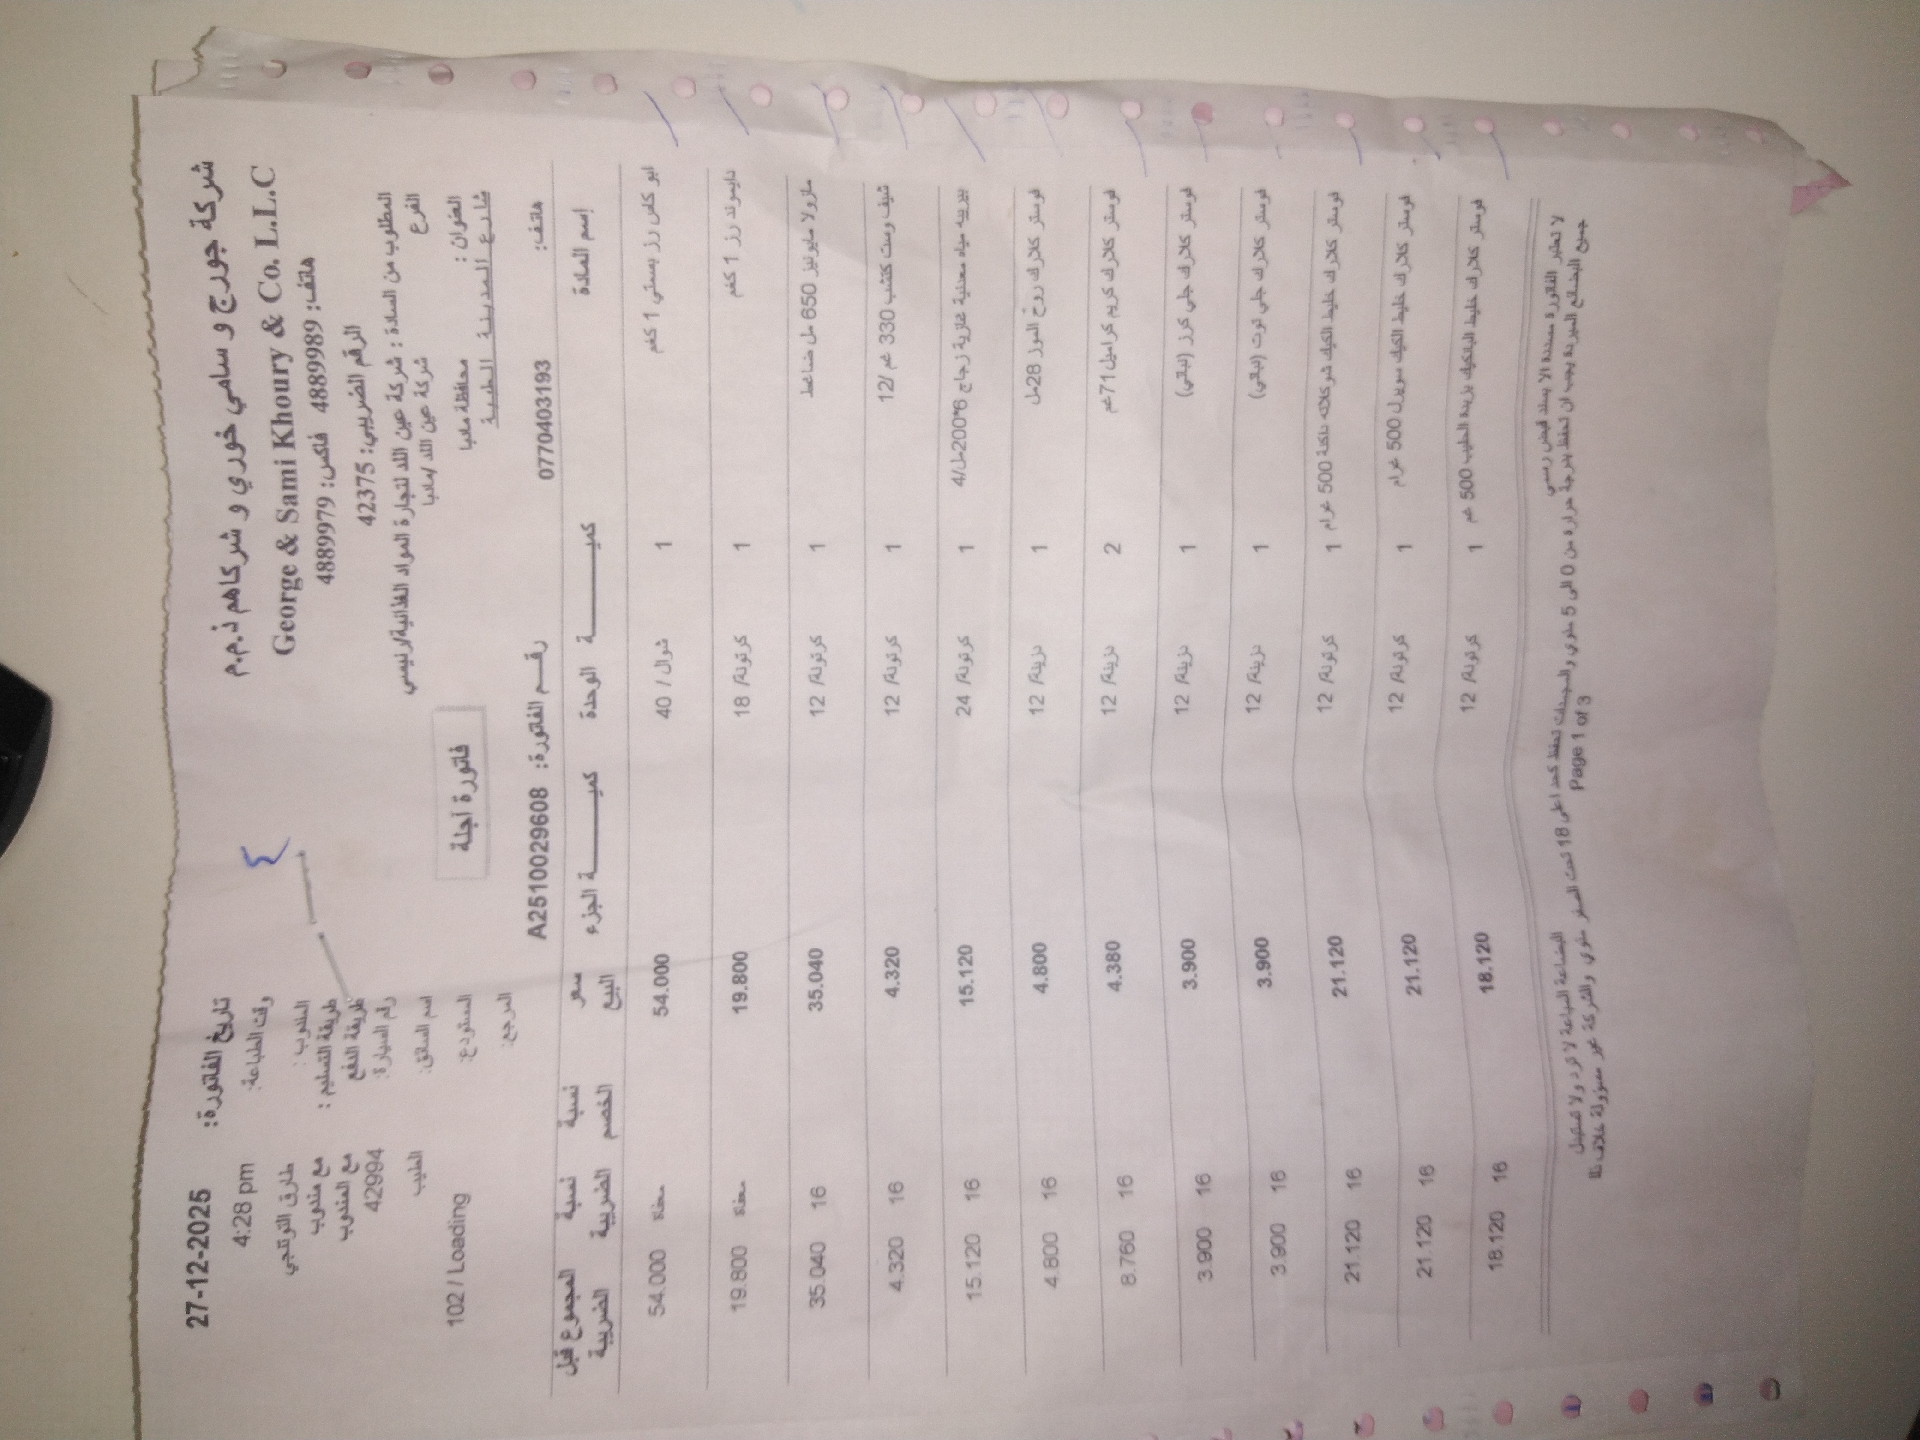 شركة جورج و سامي خوري و شركاهم ذ.م.م
George & Sami Khoury & Co. L.L.C
هاتف: 4889989 فاكس: 4889979
الرقم الضريبي: 42375
المطلوب من السادة : شركة عين اللد لتجارة المواد الغذائية/رئيسي
الفرع شركة عين اللد /مادبا
العنوان : محافظة مادبا
شارع المدينة الطبية
هاتف: 0770403193
تاريخ الفاتورة: 27-12-2025
وقت الطباعة: 4:28 pm
المندوب : طارق
طريقة التسليم : مع مندوب
طريقة الدفع مع المندوب
رقم السيارة: 42994
اسم السائق: الطيب
المستودع: 102 / Loading
المرجع:
٤
فاتورة آجلة
رقم الفاتورة: A2510029608
إسم المادة كميـة الوحدة كميـة الجزء سعر البيع نسبة الخصم نسبة الضريبة المجموع قبل الضريبة
ابو كاس رز بسمتي 1 كغم 1 شوال / 40 54.000 معفاة 54.000
دايموند رز 1 كغم 1 كرتونة/ 18 19.800 معفاة 19.800
مازولا مايونيز 650 مل ضاغط 1 كرتونة/ 12 35.040 16 35.040
شيف وست كتشب 330 غم /12 1 كرتونة/ 12 4.320 16 4.320
بيرييه مياه معدنية غازية زجاج 6*200مل/4 1 كرتونة/ 24 15.120 16 15.120
فوستر كلارك روح الموز 28مل 1 دزينة/ 12 4.800 16 4.800
فوستر كلارك كريم كراميل 71غم 2 دزينة/ 12 4.380 16 8.760
فوستر كلارك جلي كرز (نباتي) 1 دزينة/ 12 3.900 16 3.900
فوستر كلارك جلي توت (نباتي) 1 دزينة/ 12 3.900 16 3.900
فوستر كلارك خليط الكيك شوكلاته داكنة 500 غرام 1 كرتونة/ 12 21.120 16 21.120
فوستر كلارك خليط الكيك 500 غرام 1 كرتونة/ 12 21.120 16 21.120
فوستر كلارك خليط البانكيك بزبدة الحليب 500 غم 1 كرتونة/ 12 18.120 16 18.120
لا تعتبر الفاتورة مسددة الا بسند قبض رسمي البضاعة المباعة لا ترد ولا تستبدل
جميع البضائع المبردة يجب ان تحفظ بدرجة حرارة من 0 الى 5 مئوي والمجمدات تحفظ كحد اعلى 18 تحت الصفر مئوي والشركة غير مسؤولة خلاف ذلك
Page 1 of 3